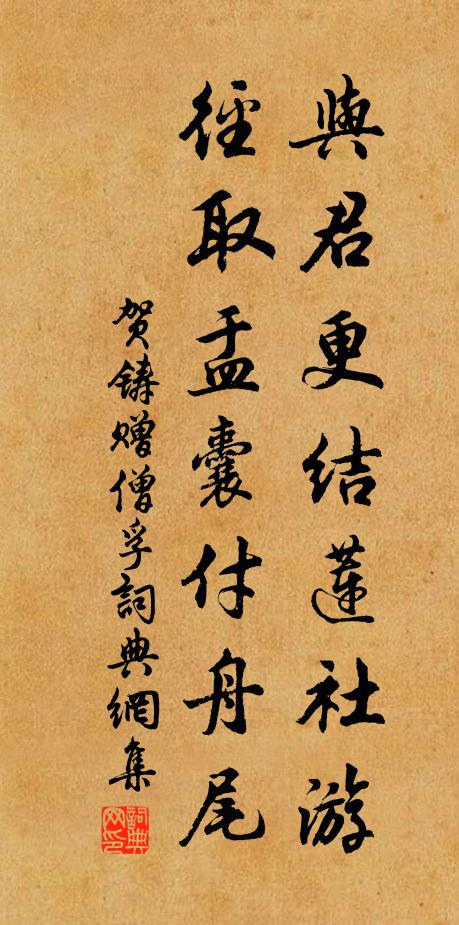 與君更結蓮社游
徑取盂囊付舟尾
賀鑄贈僧孚詞典網集
詞典网印